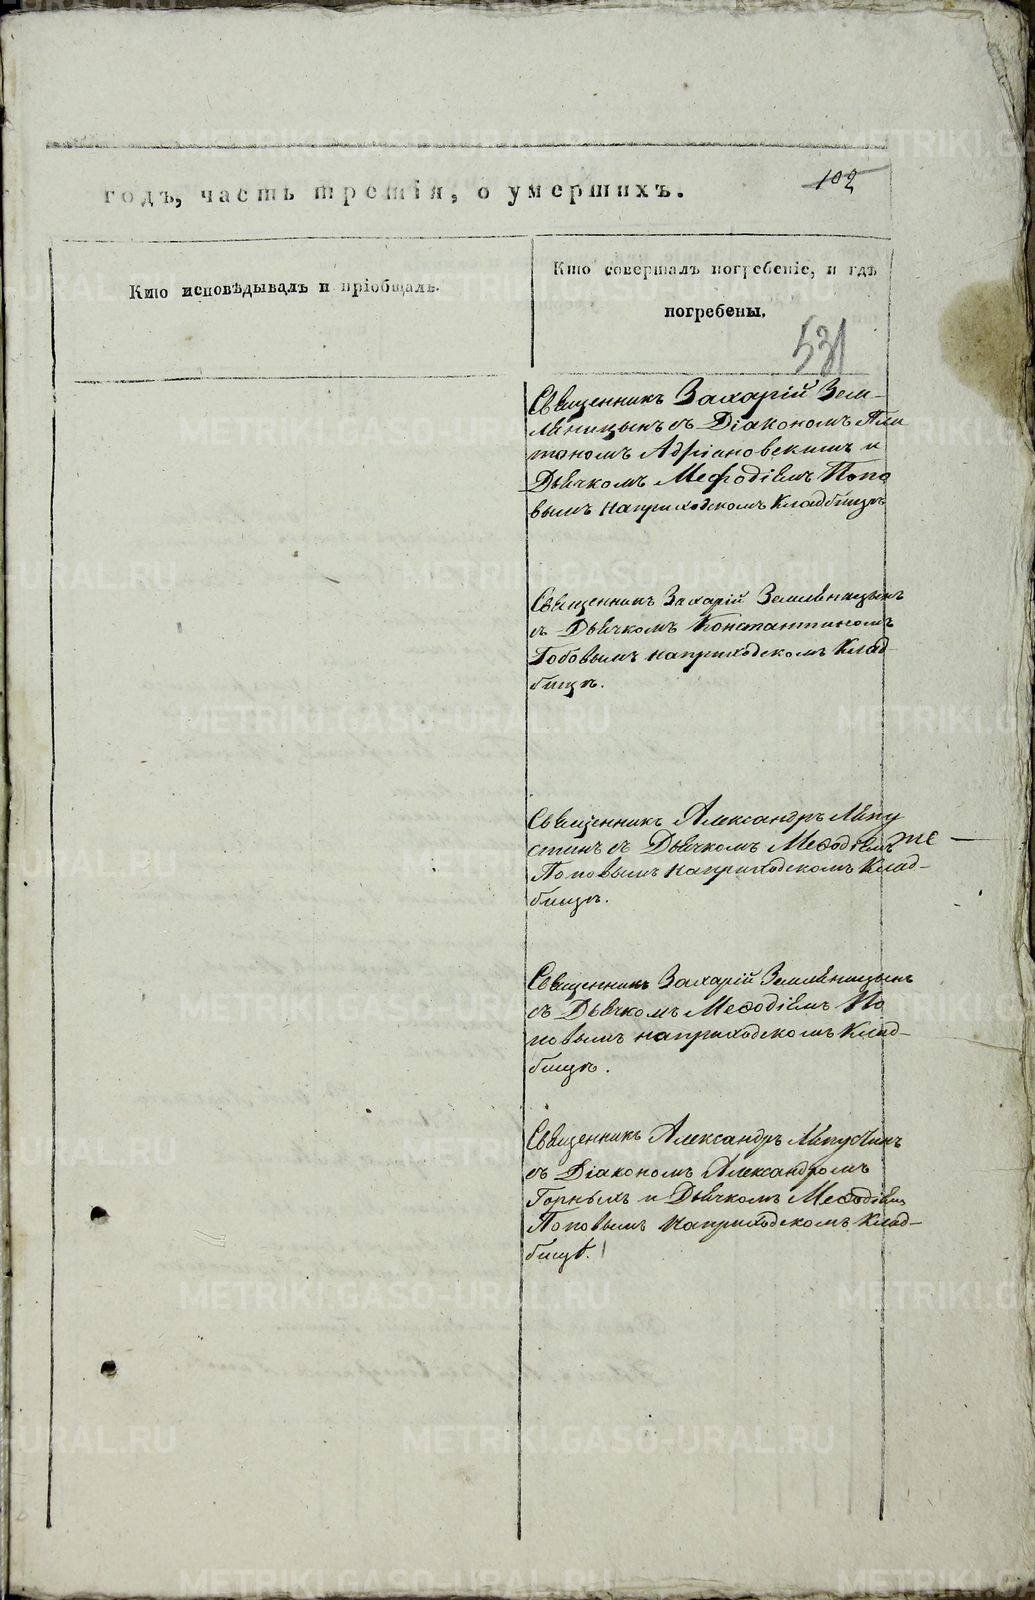 годъ, часть третія, о умершихъ.
102
Кто исповѣдывалъ и пріобщалъ.
Кто совершалъ погребеніе, и гдѣ
погребены.
531
Священникъ Захарій Зем-
ляницынъ съ Діакономъ Пла
тономъ Адріановскимъ и
Дьячкомъ Мефодіемъ Попо
вымъ на приходскомъ кладбищѣ
Священникъ Захарій Земляницынъ
съ Дьячкомъ Константиномъ
на приходскомъ клад-
бищѣ.
Священникъ Александръ Ляпу
стинъ съ Дьячкомъ Меѳодіемъ же
Поповымъ на приходскомъ клад-
бищѣ.
Священникъ Захарій Земляницынъ
съ Дьячкомъ Меѳодіемъ По
повымъ на приходскомъ клад-
бищѣ.
Священникъ Александръ Ляпустинъ
съ Діакономъ Александромъ
Горныхъ и Дьячкомъ Меѳодіемъ
Поповымъ на приходскомъ клад-
бищѣ.
METRIKI.GASO-URAL.RU